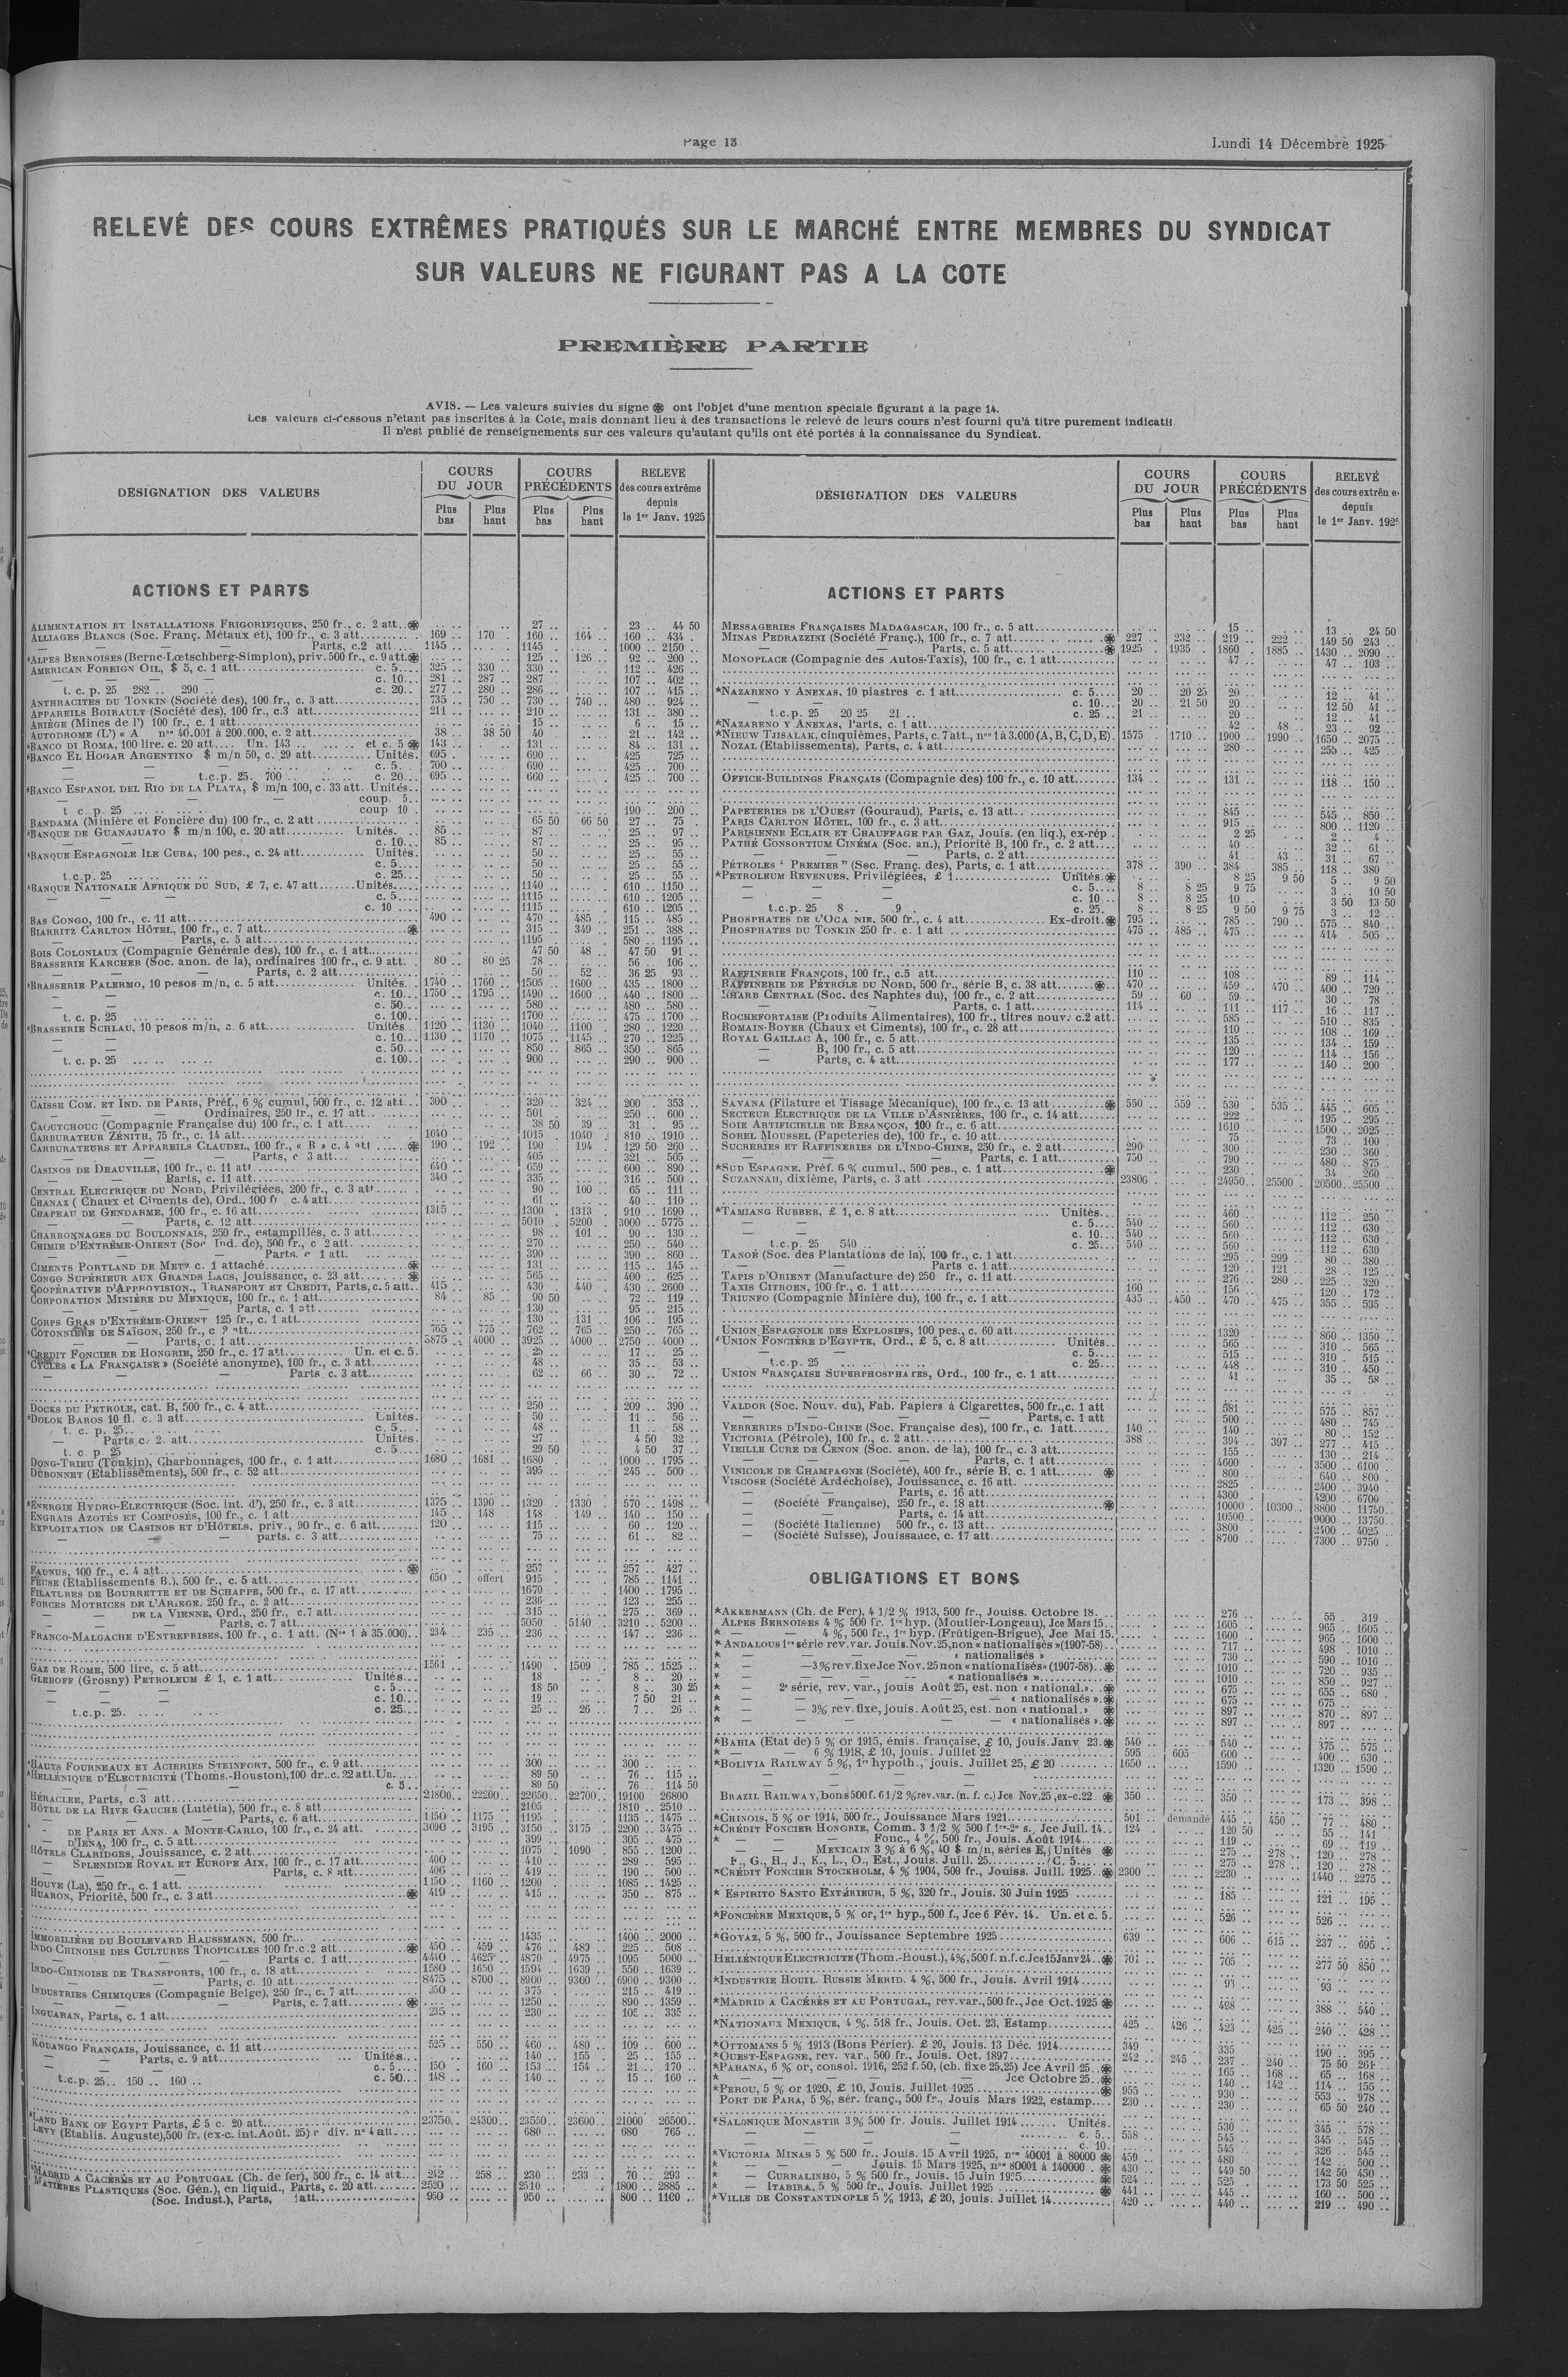 Page 13
Lundi 14 Décembre 1925
RELEVÉ DES COURS EXTRÊMES PRATIQUÉS SUR LE MARCHÉ ENTRE MEMBRES DU SYNDICAT
SUR VALEURS NE FIGURANT PAS A LA COTE
PREMIÈRE PARTIE
AVIS. — Les valeurs suivies du signe ⊛ ont l'objet d'une mention spéciale figurant à la page 14.
Les valeurs ci-dessous n'étant pas inscrites à la Cote, mais donnant lieu à des transactions le relevé de leurs cours n'est fourni qu'à titre purement indicatif
Il n'est publié de renseignements sur ces valeurs qu'autant qu'ils ont été portés à la connaissance du Syndicat.
DÉSIGNATION DES VALEURS
COURS DU JOUR
COURS PRÉCÉDENTS
RELEVE des cours extrême depuis le 1er Janv. 1925
Plus bas
Plus haut
Plus bas
Plus haut
ACTIONS ET PARTS
ALIMENTATION ET INSTALLATIONS FRIGORIFIQUES, 250 fr., c. 2 att..⊛ 27 .. 23 .. 44 50
ALLIAGES BLANCS (Soc. Franç. Métaux et), 100 fr., c. 3 att. 169 .. 170 . 160 .. 164 .. 160 .. 434 .
— — Parts, c.2 att 1145 .. 1145 .. 1000 .. 2150 ..
*ALPES BERNOISES (Berne-Lœtschberg-Simplon), priv. 500 fr., c. 9 att.⊛ 125 .. 126 .. 92 .. 200 ..
AMERICAN FOREIGN OIL, $ 5, c. 1 att. c. 5 325 .. 330 .. 330 .. 112 .. 426 ..
— — c. 10 281 .. 287 .. 287 .. 107 .. 402 ..
t. c. p. 25 282 .. 290 .. c. 20 277 .. 280 .. 286 .. 107 .. 415 ..
ANTHRACITES DU TONKIN (Société des), 100 fr., c. 3 att. 735 .. 750 .. 730 .. 740 .. 480 .. 924 ..
APPAREILS BOIRAULT (Société des), 100 fr., c.3 att. 211 .. 210 .. 131 .. 380 ..
ARIÈGE (Mines de l') 100 fr., c. 1 att. 15 .. 6 .. 15 ..
AUTODROME (L') « A nos 40.001 à 200.000, c. 2 att. 38 38 50 40 21 .. 142 ..
*BANCO DI ROMA, 100 lire. c. 20 att. Un. 143 .. et c. 5 ⊛ 143 .. 131 .. 84 .. 131 ..
*BANCO EL HOGAR ARGENTINO $ m/n 50, c. 29 att. Unités. 695 . 690 .. 425 725 ..
— — c. 5. 700 .. 690 .. 425 .. 700 ..
— t.c.p. 25. 700 .. c. 20 695 .. 660 .. 425 .. 700 ..
*BANCO ESPANOL DEL RIO DE LA PLATA, $ m/n 100, c. 33 att. Unités
— — coup. 5
t c. p. 25 coup 10 190 .. 200 ..
BANDAMA (Minière et Foncière du) 100 fr., c. 2 att 65 50 66 50 27 .. 75 ..
*BANQUE DE GUANAJUATO $ m/n 100, c. 20 att. Unités. 85 .. 87 .. 25 .. 97 ..
— c. 10 85 .. 87 .. 25 .. 95 ..
*BANQUE ESPAGNOLE ILE CUBA, 100 pes., c. 24 att. Unités 50 .. 25 .. 55 ..
— c. 5 50 .. 25 .. 55 ..
t.c.p. 25 c. 25 50 .. 25 .. 55 ..
*BANQUE NATIONALE AFRIQUE DU SUD, £ 7, c. 47 att. Unités 1140 .. 610 .. 1150 ..
— — c. 5 1115 .. 610 .. 1205 ..
c. 10 1115 .. 610 .. 1205 ..
BAS CONGO, 100 fr., c. 11 att. 490 .. 470 .. 485 .. 115 .. 485 ..
BIARRITZ CARLTON HÔTEL, 100 fr., c. 7 att. ⊛ 315 .. 349 .. 251 .. 388 ..
— Parts, c. 5 att. 1195 .. 580 .. 1195 ..
BOIS COLONIAUX (Compagnie Générale des), 100 fr., c. 1 att. 47 50 48 .. 47 50 91 ..
BRASSERIE KARCHER (Soc. anon. de la), ordinaires 100 fr., c. 9 att. 80 .. 80 25 78 .. 56 .. 106 ..
— — Parts, c. 2 att. 50 .. 52 .. 36 25 93 ..
*BRASSERIE PALERMO, 10 pesos m/n, c. 5 att. Unités. 1740 .. 1760 .. 1505 .. 1600 .. 435 .. 1800 ..
— — c. 10 1750 .. 1795 .. 1490 .. 1600 .. 440 .. 1800 ..
— — c. 50 580 .. 480 .. 580 ..
t. c. p. 25 c. 100 1700 .. 475 .. 1700 ..
*BRASSERIE SCHLAU, 10 pesos m/n, c. 6 att. Unités 1120 .. 1130 .. 1040 .. 1100 .. 280 .. 1220 ..
— — c. 10 1130 .. 1170 .. 1075 .. 1145 .. 270 .. 1225 ..
— — c. 50 850 .. 865 .. 350 .. 865 ..
t. c. p. 25 c. 100 900 .. 290 .. 900 ..
CAISSE COM. ET IND. DE PARIS, Préf., 6 % cumul, 500 fr., c. 12 att. 300 .. 320 .. 324 .. 200 .. 353 ..
— — Ordinaires, 250 fr., c. 17 att. 501 .. 250 .. 600 ..
CAOUTCHOUC (Compagnie Française du) 100 fr., c. 1 att. 38 50 39 .. 31 .. 95 ..
CARBURATEUR ZÉNITH, 75 fr., c. 14 att. 1040 .. 1015 .. 1040 .. 810 .. 1910 ..
CARBURATEURS ET APPAREILS CLAUDEL, 100 fr., « B » c. 4 att ⊛ 190 .. 192 .. 190 .. 194 .. 129 50 260 ..
— — Parts, c 3 att. 405 .. 321 .. 505 ..
CASINOS DE DEAUVILLE, 100 fr., c. 11 att. 640 .. 659 .. 600 .. 890 ..
— Parts, c. 11 att. 340 .. 335 .. 316 .. 500 ..
CENTRAL ELECTRIQUE DU NORD, Privilégiées, 200 fr., c. 3 att 90 .. 100 .. 65 .. 111 ..
CHANAZ ( Chaux et Ciments de), Ord., 100 fr c. 4 att. 61 .. 40 .. 110 ..
CHAPEAU DE GENDARME, 100 fr., c. 16 att. 1315 1300 .. 1313 .. 910 .. 1690 ..
— Parts, c. 12 att. 5010 .. 5200 3000 .. 5775 ..
CHARBONNAGES DU BOULONNAIS, 250 fr., estampillés, c. 3 att. 98 .. 101 .. 90 .. 130 ..
CHIMIE D'EXTRÊME-ORIENT (Soc Ind. de), 500 fr., c 2 att. 270 .. 250 .. 540 ..
— — Parts. c 1 att. 390 .. 390 .. 860 ..
CIMENTS PORTLAND DE METZ c. 1 attaché ⊛ 131 .. 115 .. 145 ..
CONGO SUPÉRIEUR AUX GRANDS LACS, jouissance, c. 23 att. ⊛ 565 .. 400 .. 625 ..
COOPÉRATIVE D'APPROVISION., TRANSPORT ET CREDIT, Parts, c. 5 att. 415 .. 430 .. 440 .. 430 .. 2600 ..
CORPORATION MINIÈRE DU MEXIQUE, 100 fr., c. 1 att. 84 .. 85 .. 90 50 72 .. 119 ..
— — Parts, c. 1 att 130 .. 95 .. 215 ..
CORPS GRAS D'EXTRÊME-ORIENT 125 fr., c. 1 att. 130 .. 131 .. 106 .. 195 ..
COTONNIÈRE DE SAÏGON, 250 fr., c. 2 att. 765 .. 775 .. 762 .. 765 .. 250 .. 765 ..
— Parts, c. 1 att. 3875 .. 4000 .. 3925 .. 4000 .. 2750 .. 4000 ..
*CREDIT FONCIER DE HONGRIE, 250 fr., c. 17 att. Un. et c. 5. 25 .. 17 .. 25 ..
CYCLES « LA FRANÇAISE » (Société anonyme), 100 fr., c. 3 att. 48 .. 35 .. 53 ..
— — Parts c. 3 att. 62 .. 66 .. 30 .. 72 ..
DOCKS DU PETROLE, cat. B, 500 fr., c. 4 att. 250 .. 209 .. 390 ..
*DOLOK BAROS 10 fl. c. 3 att. Unités. 50 .. 11 .. 56 ..
t. c. p. 25. c. 5 48 .. 11 .. 58 ..
— Parts c. 2. att. Unités. 27 .. 4 50 32 ..
t. c. p. 25 c. 5 29 50 4 50 37 ..
DONG-TRIEU (Tonkin), Charbonnages, 100 fr., c. 1 att. 1680 .. 1681 .. 1680 .. 1000 .. 1795 ..
DUBONNET (Etablissements), 500 fr., c. 52 att. 395 .. 245 .. 500 ..
*ENERGIE HYDRO-ELECTRIQUE (Soc. int. d'), 250 fr., c. 3 att. 1375 .. 1390 .. 1320 .. 1330 .. 570 .. 1498 ..
ENGRAIS AZOTÉS ET COMPOSÉS, 100 fr., c. 1 att. 145 .. 148 .. 148 .. 149 .. 140 .. 150 ..
EXPLOITATION DE CASINOS ET D'HÔTELS, priv., 90 fr., c. 6 att. 120 .. 115 .. 60 .. 120 ..
— — parts. c. 3 att. 75 .. 61 .. 82 ..
FAUNUS, 100 fr., c. 4 att. ⊛ 257 .. 257 .. 427 ..
FEUSE (Etablissements B.). 500 fr., c. 5 att. 650 .. offert 915 .. 785 .. 1141 ..
FILATURES DE BOURRETTE ET DE SCHAPPE, 500 fr., c. 17 att. 1670 .. 1400 .. 1795 ..
FORCES MOTRICES DE L'ARIEGE. 250 fr., c. 2 att. 236 .. 123 .. 255 ..
— DE LA VIENNE, Ord., 250 fr., c. 7 att. 315 .. 275 .. 369 ..
— — Parts, c. 7 att. 5050 .. 5140 .. 3210 .. 5200 ..
FRANCO-MALGACHE D'ENTREPRISES, 100 fr., c. 1 att. (Nos 1 à 35.000) 234 235 .. 236 .. 147 .. 236 ..
GAZ DE ROME, 500 lire, c. 5 att. 1561 .. 1490 .. 1509 .. 785 .. 1525 ..
GLEBOFF (Grosny) PETROLEUM £ 1, c. 1 att. Unités 18 .. 8 .. 20 ..
— — c. 5 18 50 8 .. 30 25
— — c. 10 19 .. 7 50 21 ..
t.c.p. 25. c. 25 25 .. 26 .. 7 .. 26 ..
*HAUTS FOURNEAUX ET ACIERIES STEINFORT, 500 fr., c. 9 att. 300 .. 300 ..
*HELLÉNIQUE D'ELECTRICITÉ (Thoms.-Houston), 100 dr.. c. 22 att. Un. 89 50 76 .. 115 ..
— — c. 5 89 50 76 .. 114 50
HÉRACLEE, Parts, c.3 att. 21800 .. 22200 .. 22650 .. 22700 .. 19100 26800
HÔTEL DE LA RIVE GAUCHE (Lutétia), 500 fr., c. 8 att. 2105 1810 .. 2510 ..
— — Parts, c. 6 att. 1150 .. 1175 .. 1195 .. 1135 .. 1475 ..
— DE PARIS ET ANN. A MONTE-CARLO, 100 fr., c. 24 att. 3090 .. 3195 .. 3150 .. 3175 .. 2200 .. 3475 ..
— D'IENA, 100 fr., c. 5 att. 399 .. 305 .. 475 ..
HÔTELS CLARIDGES, Jouissance, c. 2 att. 1075 .. 1090 .. 855 .. 1200 ..
— SPLENDIDE ROYAL ET EUROPE AIX, 100 fr., c. 17 att. 400 .. 410 .. 289 .. 595 ..
— — Parts, c. 8 att. 406 .. 419 .. 190 .. 500 ..
HOUVE (La), 250 fr., c. 1 att. 1150 .. 1160 .. 1200 .. 1085 .. 1425 ..
HUARON, Priorité, 500 fr., c. 3 att. ⊛ 419 .. 415 .. 350 .. 875 ..
IMMOBILIÈRE DU BOULEVARD HAUSSMANN, 500 fr. 1435 .. 1400 .. 2000 ..
INDO-CHINOISE DES CULTURES TROPICALES 100 fr. c. 2 att. ⊛ 450 .. 459 .. 476 .. 489 .. 225 .. 508 ..
— — Parts c. 1 att. 4440 .. 4625 4870 .. 4975 .. 1095 5000 ..
INDO-CHINOISE DE TRANSPORTS, 100 fr., c. 18 att. 1580 .. 1650 .. 1594 .. 1639 .. 550 .. 1639 ..
— — Parts, c. 10 att. 8475 .. 8700 .. 8900 .. 9300 .. 6900 .. 9300 ..
INDUSTRIES CHIMIQUES (Compagnie Belge), 250 fr., c. 7 att. 350 .. 375 .. 215 .. 419 ..
— — Parts, c. 7 att. ⊛ 1250 .. 890 .. 1359 ..
INGUARAN, Parts, c. 1 att. 235 .. 230 .. 105 .. 335 ..
KOUANGO FRANÇAIS, Jouissance, c. 11 att. 525 .. 550 .. 460 .. 480 .. 109 .. 600 ..
— Parts, c. 9 att. Unités 140 .. 155 .. 25 .. 155 ..
— — c. 5 150 . 160 .. 153 .. 154 .. 21 .. 170 ..
t.c.p. 25.. 150 .. 160 .. c. 50 148 .. 140 .. 15 .. 160 ..
*LAND BANK OF EGYPT Parts, £ 5 c. 20 att. 23750 .. 24300 .. 23550 .. 23600 .. 21000 26500 ..
LEVY (Etablis. Auguste), 500 fr. (ex-c. int. Août. 25) c div. n° 4 att. 680 .. 680 .. 765 ..
*MADRID A CACÉRÈS ET AU PORTUGAL (Ch. de fer), 500 fr., c. 14 att 242 .. 258 .. 230 .. 233 .. 70 .. 293 ..
MATIÈRES PLASTIQUES (Soc. Gén.), en liquid., Parts, c. 20 att. 2520 .. 2510 .. 1800 .. 2885 ..
(Soc. Indust.), Parts, 1 att. 950 .. 950 .. 800 .. 1100 ..
DÉSIGNATION DES VALEURS
COURS DU JOUR
COURS PRÉCÉDENTS
RELEVÉ des cours extrême depuis le 1er Janv. 192
Plus bas
Plus haut
Plus bas
Plus haut
ACTIONS ET PARTS
MESSAGERIES FRANÇAISES MADAGASCAR, 100 fr., c. 5 att. 15 .. 13 .. 24 50
MINAS PEDRAZZINI (Société Franç.), 100 fr., c. 7 att. ⊛ 227 .. 232 .. 219 .. 222 .. 149 50 243 ..
— — Parts, c. 5 att. ⊛ 1925 .. 1935 .. 1860 .. 1885 .. 1430 .. 2090 ..
MONOPLACE (Compagnie des Autos-Taxis), 100 fr., c. 1 att. 47 .. 47 .. 103 ..
*NAZARENO Y ANEXAS, 10 piastres c. 1 att. c. 5 20 .. 20 25 20 .. 12 .. 41 ..
— c. 10 20 .. 21 50 20 .. 12 50 41 ..
t.c.p. 25 20 25 21 .. c. 25 21 .. 20 .. 12 .. 41 ..
*NAZARENO Y ANEXAS, Parts, c. 1 att. 42 .. 48 .. 23 .. 92 ..
*NIEUW TJISALAK, cinquièmes, Parts, c. 7 att., nos 1 à 3.000 (A, B, C, D, E). 1575 .. 1710 .. 1900 .. 1990 .. 1650 .. 2075 ..
NOZAL (Etablissements), Parts, c. 4 att. 280 .. 255 .. 425 ..
OFFICE-BUILDINGS FRANÇAIS (Compagnie des) 100 fr., c. 10 att. 134 .. 131 .. 118 .. 150 ..
PAPETERIES DE L'OUEST (Gouraud), Parts, c. 13 att. 845 .. 545 .. 850 ..
PARIS CARLTON HÔTEL, 100 fr., c. 3 att. 915 .. 800 .. 1120 ..
PARISIENNE ECLAIR ET CHAUFFAGE PAR GAZ, Jouis. (en liq.), ex-rép 2 25 2 .. 4 ..
PATHÉ CONSORTIUM CINÉMA (Soc. an.), Priorité B, 100 fr., c. 2 att. 40 .. 32 .. 61 ..
— — Parts, c. 2 att. 41 .. 43 .. 31 .. 67 ..
PÉTROLES “ PREMIER ” (Soc. Franç. des), Parts, c. 1 att. 378 .. 390 .. 384 .. 385 .. 118 .. 380 ..
*PETROLEUM REVENUES, Privilégiées, £ 1 Unités ⊛ 8 25 9 50 5 .. 9 50
— — c. 5 8 .. 8 25 9 75 3 .. 10 50
— — c. 10 8 .. 8 25 10 .. 3 50 13 50
t.c.p. 25 8 .. 9 . c. 25. 8 .. 8 25 9 50 9 75 3 .. 12 ..
PHOSPHATES DE L'OCA NIE, 500 fr., c. 4 att. Ex-droit. ⊛ 795 .. 785 .. 790 .. 575 .. 840 ..
PHOSPHATES DU TONKIN 250 fr. c. 1 att 475 .. 485 .. 475 .. 414 .. 505 ..
RAFFINERIE FRANÇOIS, 100 fr., c.5 att. 110 .. 108 .. 89 .. 114 ..
RAFFINERIE DE PÉTROLE DU NORD, 500 fr., série B, c. 38 att ⊛ 470 .. 459 .. 470 .. 400 .. 720 ..
CENTRAL (Soc. des Naphtes du), 100 fr., c. 2 att. 59 .. 60 .. 59 .. 30 .. 78 ..
— — Parts, c. 1 att. 114 .. 111 .. 117 .. 16 .. 117 ..
ROCHEFORTAISE (Produits Alimentaires), 100 fr., titres nouv. c.2 att. 585 .. 510 .. 835 ..
ROMAIN-BOYER (Chaux et Ciments), 100 fr., c. 28 att. 110 .. 108 .. 169 ..
ROYAL GAILLAC A, 100 fr., c. 5 att. 135 .. 134 .. 159 ..
— B, 100 fr., c. 5 att. 120 .. 114 .. 156 ..
— Parts, c. 4 att. 177 .. 140 .. 200 ..
SAVANA (Filature et Tissage Mécanique), 100 fr., c. 13 att. ⊛ 550 .. 559 .. 530 .. 535 .. 445 .. 605 ..
SECTEUR ELECTRIQUE DE LA VILLE D'ASNIÈRES, 100 fr., c. 14 att. 222 .. 195 .. 295 ..
SOIE ARTIFICIELLE DE BESANÇON, 100 fr., c. 6 att. 1610 .. 1500 .. 2025 ..
SOREL MOUSSEL (Papeteries de), 100 fr., c. 10 att. 75 .. 73 .. 100 ..
SUCRERIES ET RAFFINERIES DE L'INDO-CHINE, 250 fr., c. 2 att. 290 .. 300 .. 230 .. 360 ..
— — Parts, c. 1 att. 750 .. 790 .. 480 .. 875 ..
*SUD ESPAGNE. Préf. 6 % cumul., 500 pes., c. 1 att. ⊛ 230 .. 34 .. 260 ..
SUZANNAH, dixième, Parts, c. 3 att 23806 .. 24950 .. 25500 .. 20500 .. 25500 ..
*TAMIANG RUBBER, £ 1, c. 8 att. Unités 460 .. 112 .. 250 ..
— — c. 5 540 .. 560 .. 112 .. 630 ..
— — c. 10 540 .. 560 .. 112 .. 630 ..
t.c.p. 25 540 .. c. 25 540 .. 560 .. 112 .. 630 ..
TANOÉ (Soc. des Plantations de la), 100 fr., c. 1 att. 295 .. 299 .. 80 .. 380 ..
— — Parts c. 1 att. 120 .. 121 .. 28 .. 125 ..
TAPIS D'ORIENT (Manufacture de) 250 fr., c. 11 att. 276 .. 280 .. 225 .. 320 ..
TAXIS CITROEN, 100 fr., c. 1 att. 160 .. 156 .. 120 .. 172 ..
TRIUNFO (Compagnie Minière du), 100 fr., c. 1 att. 435 .. 450 .. 470 .. 475 .. 355 .. 535 ..
UNION ESPAGNOLE DES EXPLOSIFS, 100 pes., c. 60 att. 1320 .. 860 .. 1350 ..
*UNION FONCIÈRE D'EGYPTE, Ord., £ 5, c. 8 att. Unités 565 .. 310 .. 565 ..
— — c. 5 515 .. 310 .. 515 ..
t.c.p. 25 c. 25 448 .. 310 .. 450 ..
UNION FRANÇAISE SUPERPHOSPHATES, Ord., 100 fr., c. 1 att. 41 .. 35 .. 58 ..
VALDOR (Soc. Nouv. du), Fab. Papiers à Cigarettes, 500 fr., c. 1 att 581 .. 575 .. 857 ..
— — Parts, c. 1 att 500 .. 480 .. 745 ..
VERRERIES D'INDO-CHINE (Soc. Française des), 100 fr., c. 1 att. 140 .. 140 .. 80 .. 152 ..
VICTORIA (Pétrole), 100 fr., c. 2 att. 388 .. 394 .. 397 .. 277 .. 415 ..
VIEILLE CURE DE CENON (Soc. anon. de la), 100 fr., c. 3 att. 155 .. 130 .. 214 ..
— — Parts, c. 1 att. 4600 .. 3500 .. 6100 ..
VINICOLE DE CHAMPAGNE (Société), 400 fr., série B, c. 1 att. ⊛ 800 .. 640 .. 800 ..
VISCOSE (Société Ardéchoise), Jouissance, c. 16 att. 2825 2400 .. 3940 ..
— — Parts, c. 16 att. 4300 .. 4200 .. 6700 ..
— (Société Française), 250 fr., c. 18 att. ⊛ 10000 10300 .. 8800 .. 11750 ..
— — Parts, c. 14 att. 10500 .. 9000 .. 13750 ..
— (Société Italienne) 500 fr., c. 13 att. 3800 .. 2400 .. 4025 ..
— (Société Suisse), Jouissance, c. 17 att. 8700 .. 7300 .. 9750 ..
OBLIGATIONS ET BONS
*AKKERMANN (Ch. de Fer), 4 1/2 % 1913, 500 fr., Jouiss. Octobre 18. 276 .. 55 .. 319 ..
ALPES BERNOISES 4 % 500 fr. 1re hyp. (Moutier-Longeau), Jce Mars 15. 1605 .. 965 .. 1605 ..
* — — 4 %, 500 fr., 1re hyp. (Frütigen-Brigue), Jce Mai 15. 1600 .. 965 .. 1600 ..
*ANDALOUS 1re série rev. var. Jouis. Nov. 25, non « nationalisés » (1907-58) 717 .. 498 .. 1010 ..
* — — — « nationalisés » 730 .. 590 .. 1010 ..
* — — 3 % rev. fixe Jce Nov. 25 non « nationalisés » (1907-58) ⊛ 1010 .. 720 .. 935 ..
* — — — « nationalisés » 1010 .. 850 .. 927 ..
* — 2e série, rev. var., jouis Août 25, est. non « national. » ⊛ 675 .. 655 .. 680 ..
* — — — « nationalisés ». ⊛ 675 .. 675 ..
* — — 3% rev. fixe, jouis. Août 25, est. non « national. » ⊛ 897 .. 870 .. 897 ..
* — — — « nationalisés ». ⊛ 897 .. 897 ..
*BAHIA (Etat de) 5 % or 1915, émis. française, £ 10, jouis. Janv 23. ⊛ 540 .. 540 .. 375 .. 575 ..
* — 6 % 1918, £ 10, jouis. Juillet 22 595 .. 605 600 .. 400 .. 630 ..
*BOLIVIA RAILWAY 5 %, 1re hypoth., jouis. Juillet 25, £ 20 1650 .. 1590 .. 1320 .. 1590 ..
BRAZIL RAILWAY, bons 500 f. 6 1/2 % rev. var. (n. f. c.) Jce Nov. 25, ex-c. 22 ⊛ 350 .. 350 .. 173 .. 398 ..
*CHINOIS, 5 % or 1914, 500 fr., Jouissance Mars 1921 501 .. demandé 445 .. 450 .. 77 .. 480 ..
*CRÉDIT FONCIER HONGRIE, Comm. 3 1/2 % 500 f. 1re-2e s. Jce Juil. 14 124 .. 120 50 55 .. 141 ..
* — — Fonc., 4 %, 500 fr., Jouis. Août 1914 119 .. 69 .. 119 ..
— MEXICAIN 3 % à 6 %, 40 $ m/n, séries E, Unités ⊛ 275 .. 278 .. 120 .. 278 ..
F., G., H., J., K., L., O., Est., Jouis. Juill. 25 C. 5 275 .. 278 .. 120 .. 278 ..
*CRÉDIT FONCIER STOCKHOLM, 4 % 1904, 500 fr., Jouiss. Juill. 1925 ⊛ 2300 .. 2230 .. 1440 .. 2275 ..
* ESPIRITO SANTO EXTÉRIEUR, 5 %, 320 fr., Jouis. 30 Juin 1925 185 .. 121 .. 195 ..
*FONCIÈRE MEXIQUE, 5 % or, 1re hyp., 500 f., Jce 6 Fév. 14. Un. et c. 5. 526 .. 526 ..
*GOYAZ, 5 %, 500 fr., Jouissance Septembre 1925 639 .. 606 .. 615 .. 237 .. 695 ..
HELLÉNIQUE ELECTRICITE (Thom.-Houst.), 4%, 500 f. n.f.c. Jce 15 Janv 24 ⊛ 701 .. 705 .. 277 50 850 ..
*INDUSTRIE HOUIL. RUSSIE MERID. 4 %, 500 fr., Jouis. Avril 1914 93 .. 93 ..
*MADRID A CACÉRÈS ET AU PORTUGAL, rev. var., 500 fr., Jce Oct. 1925 ⊛ 498 .. 388 .. 540 ..
*NATIONAUX MEXIQUE, 4 %, 518 fr., Jouis. Oct. 23, Estamp. 425 .. 426 .. 423 .. 425 .. 240 .. 428 ..
*OTTOMANS 5 % 1913 (Bons Périer). £ 20, Jouis. 13 Déc. 1914 349 .. 335 .. 190 .. 395 ..
*OUEST-ESPAGNE, rev. var., 500 fr., Jouis. Oct. 1897 242 .. 245 .. 237 .. 240 .. 75 50 261 ..
*PARANA, 6 % or, consol. 1916, 252 f. 50, (ch. fixe 25,25) Jce Avril 25 ⊛ 165 .. 168 .. 65 .. 168 ..
* — — Jce Octobre 25 ⊛ 140 .. 142 .. 114 .. 155 ..
*PEROU, 5 % or 1920, £ 10, Jouis. Juillet 1925 ⊛ 955 .. 930 .. 553 .. 978 ..
PORT DE PARA, 5 %, sér. franç., 500 fr., Jouis Mars 1922, estamp. 230 .. 230 .. 65 50 240 ..
*SALONIQUE MONASTIR 3 % 500 fr. Jouis. Juillet 1914 Unités. 530 .. 345 .. 578 ..
— — c. 5. 558 .. 545 .. 345 .. 545 ..
c. 10. 545 .. 326 .. 545 ..
*VICTORIA MINAS 5 % 500 fr., Jouis. 15 Avril 1925, nos 40001 à 80000 ⊛ 459 .. 480 .. 142 .. 500 ..
* — — Jouis. 15 Mars 1925, nos 80001 à 140000 . ⊛ 430 .. 449 50 142 50 450 ..
* — CURRALINHO, 5 % 500 fr., Jouis. 15 Juin 1925 ⊛ 524 .. 525 .. 173 50 525 ..
* — ITABIRA, 5 % 500 fr., Jouis. Juillet 1925 ⊛ 441 .. 445 .. 160 .. 500 ..
*VILLE DE CONSTANTINOPLE 5 % 1913, £ 20, jouis. Juillet 14 420 .. 440 .. 219 .. 490 ..